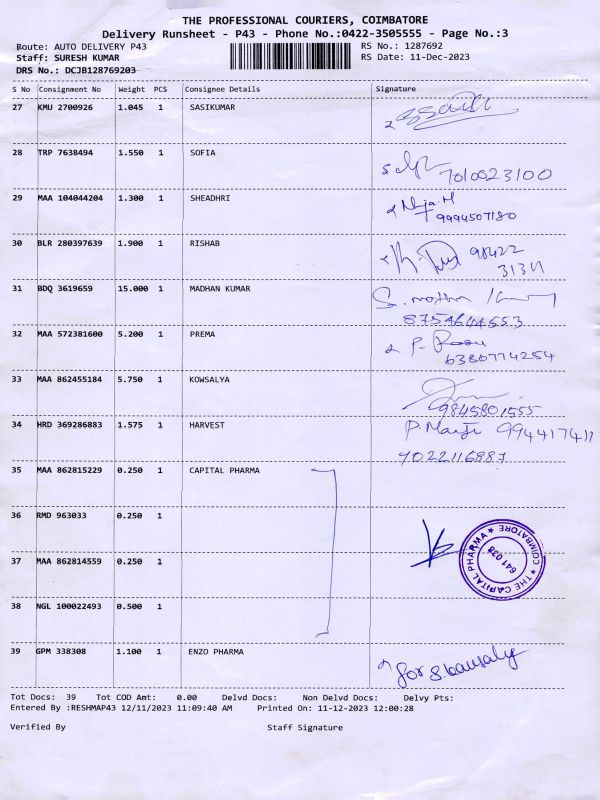 THE PROFESSIONAL COURIERS, COIMBATORE
Delivery Runsheet - P43 - Phone No.:0422-3505555 - Page No.:3
Route: AUTO DELIVERY P43 RS No.: 1287692
Staff: SURESH KUMAR RS Date: 11-Dec-2023
DRS No.: DCJB128769203
S No Consignment No Weight PCS Consignee Details Signature
27 KMU 2700926 1.045 1 SASIKUMAR
28 TRP 7638494 1.550 1 SOFIA
7010023100
29 MAA 104044204 1.300 1 SHEADHRI
9994507180
30 BLR 280397639 1.900 1 RISHAB
98422
31 BDQ 3619659 15.000 1 MADHAN KUMAR
8754644553
32 MAA 572381600 5.200 1 PREMA
6380774254
33 MAA 862455184 5.750 1 KOWSALYA
9845801555
34 HRD 369286883 1.575 1 HARVEST
35 MAA 862815229 0.250 1 CAPITAL PHARMA
36 RMD 963033 0.250 1
THE CAPITAL PHARMA ★ COIMBATORE ★
641 038
37 MAA 862814559 0.250 1
38 NGL 100022493 0.500 1
39 GPM 338308 1.100 1 ENZO PHARMA
for
Tot Docs: 39 Tot COD Amt: 0.00 Delvd Docs: Non Delvd Docs: Delvy Pts:
Entered By :RESHMAP43 12/11/2023 11:09:40 AM Printed On: 11-12-2023 12:00:28
Verified By Staff Signature